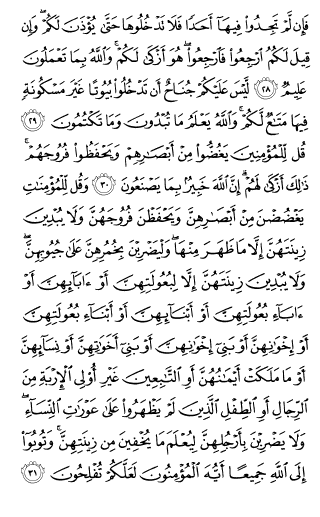 فَإِن لَّمْ تَجِدُوا۟ فِيهَآ أَحَدًا فَلَا تَدْخُلُوهَا حَتَّىٰ يُؤْذَنَ لَكُمْ ۖ وَإِن
قِيلَ لَكُمُ ٱرْجِعُوا۟ فَٱرْجِعُوا۟ ۖ هُوَ أَزْكَىٰ لَكُمْ ۚ وَٱللَّهُ بِمَا تَعْمَلُونَ
عَلِيمٌ ﴿٢٨﴾ لَّيْسَ عَلَيْكُمْ جُنَاحٌ أَن تَدْخُلُوا۟ بُيُوتًا غَيْرَ مَسْكُونَةٍ
فِيهَا مَتَـٰعٌ لَّكُمْ ۚ وَٱللَّهُ يَعْلَمُ مَا تُبْدُونَ وَمَا تَكْتُمُونَ ﴿٢٩﴾
قُل لِّلْمُؤْمِنِينَ يَغُضُّوا۟ مِنْ أَبْصَـٰرِهِمْ وَيَحْفَظُوا۟ فُرُوجَهُمْ ۚ
ذَٰلِكَ أَزْكَىٰ لَهُمْ ۗ إِنَّ ٱللَّهَ خَبِيرٌۢ بِمَا يَصْنَعُونَ ﴿٣٠﴾ وَقُل لِّلْمُؤْمِنَـٰتِ
يَغْضُضْنَ مِنْ أَبْصَـٰرِهِنَّ وَيَحْفَظْنَ فُرُوجَهُنَّ وَلَا يُبْدِينَ
زِينَتَهُنَّ إِلَّا مَا ظَهَرَ مِنْهَا ۖ وَلْيَضْرِبْنَ بِخُمُرِهِنَّ عَلَىٰ جُيُوبِهِنَّ ۖ
وَلَا يُبْدِينَ زِينَتَهُنَّ إِلَّا لِبُعُولَتِهِنَّ أَوْ ءَابَآئِهِنَّ أَوْ
ءَابَآءِ بُعُولَتِهِنَّ أَوْ أَبْنَآئِهِنَّ أَوْ أَبْنَآءِ بُعُولَتِهِنَّ
أَوْ إِخْوَٰنِهِنَّ أَوْ بَنِىٓ إِخْوَٰنِهِنَّ أَوْ بَنِىٓ أَخَوَٰتِهِنَّ أَوْ نِسَآئِهِنَّ
أَوْ مَا مَلَكَتْ أَيْمَـٰنُهُنَّ أَوِ ٱلتَّـٰبِعِينَ غَيْرِ أُو۟لِى ٱلْإِرْبَةِ مِنَ
ٱلرِّجَالِ أَوِ ٱلطِّفْلِ ٱلَّذِينَ لَمْ يَظْهَرُوا۟ عَلَىٰ عَوْرَٰتِ ٱلنِّسَآءِ ۖ
وَلَا يَضْرِبْنَ بِأَرْجُلِهِنَّ لِيُعْلَمَ مَا يُخْفِينَ مِن زِينَتِهِنَّ ۚ وَتُوبُوٓا۟
إِلَى ٱللَّهِ جَمِيعًا أَيُّهَ ٱلْمُؤْمِنُونَ لَعَلَّكُمْ تُفْلِحُونَ ﴿٣١﴾